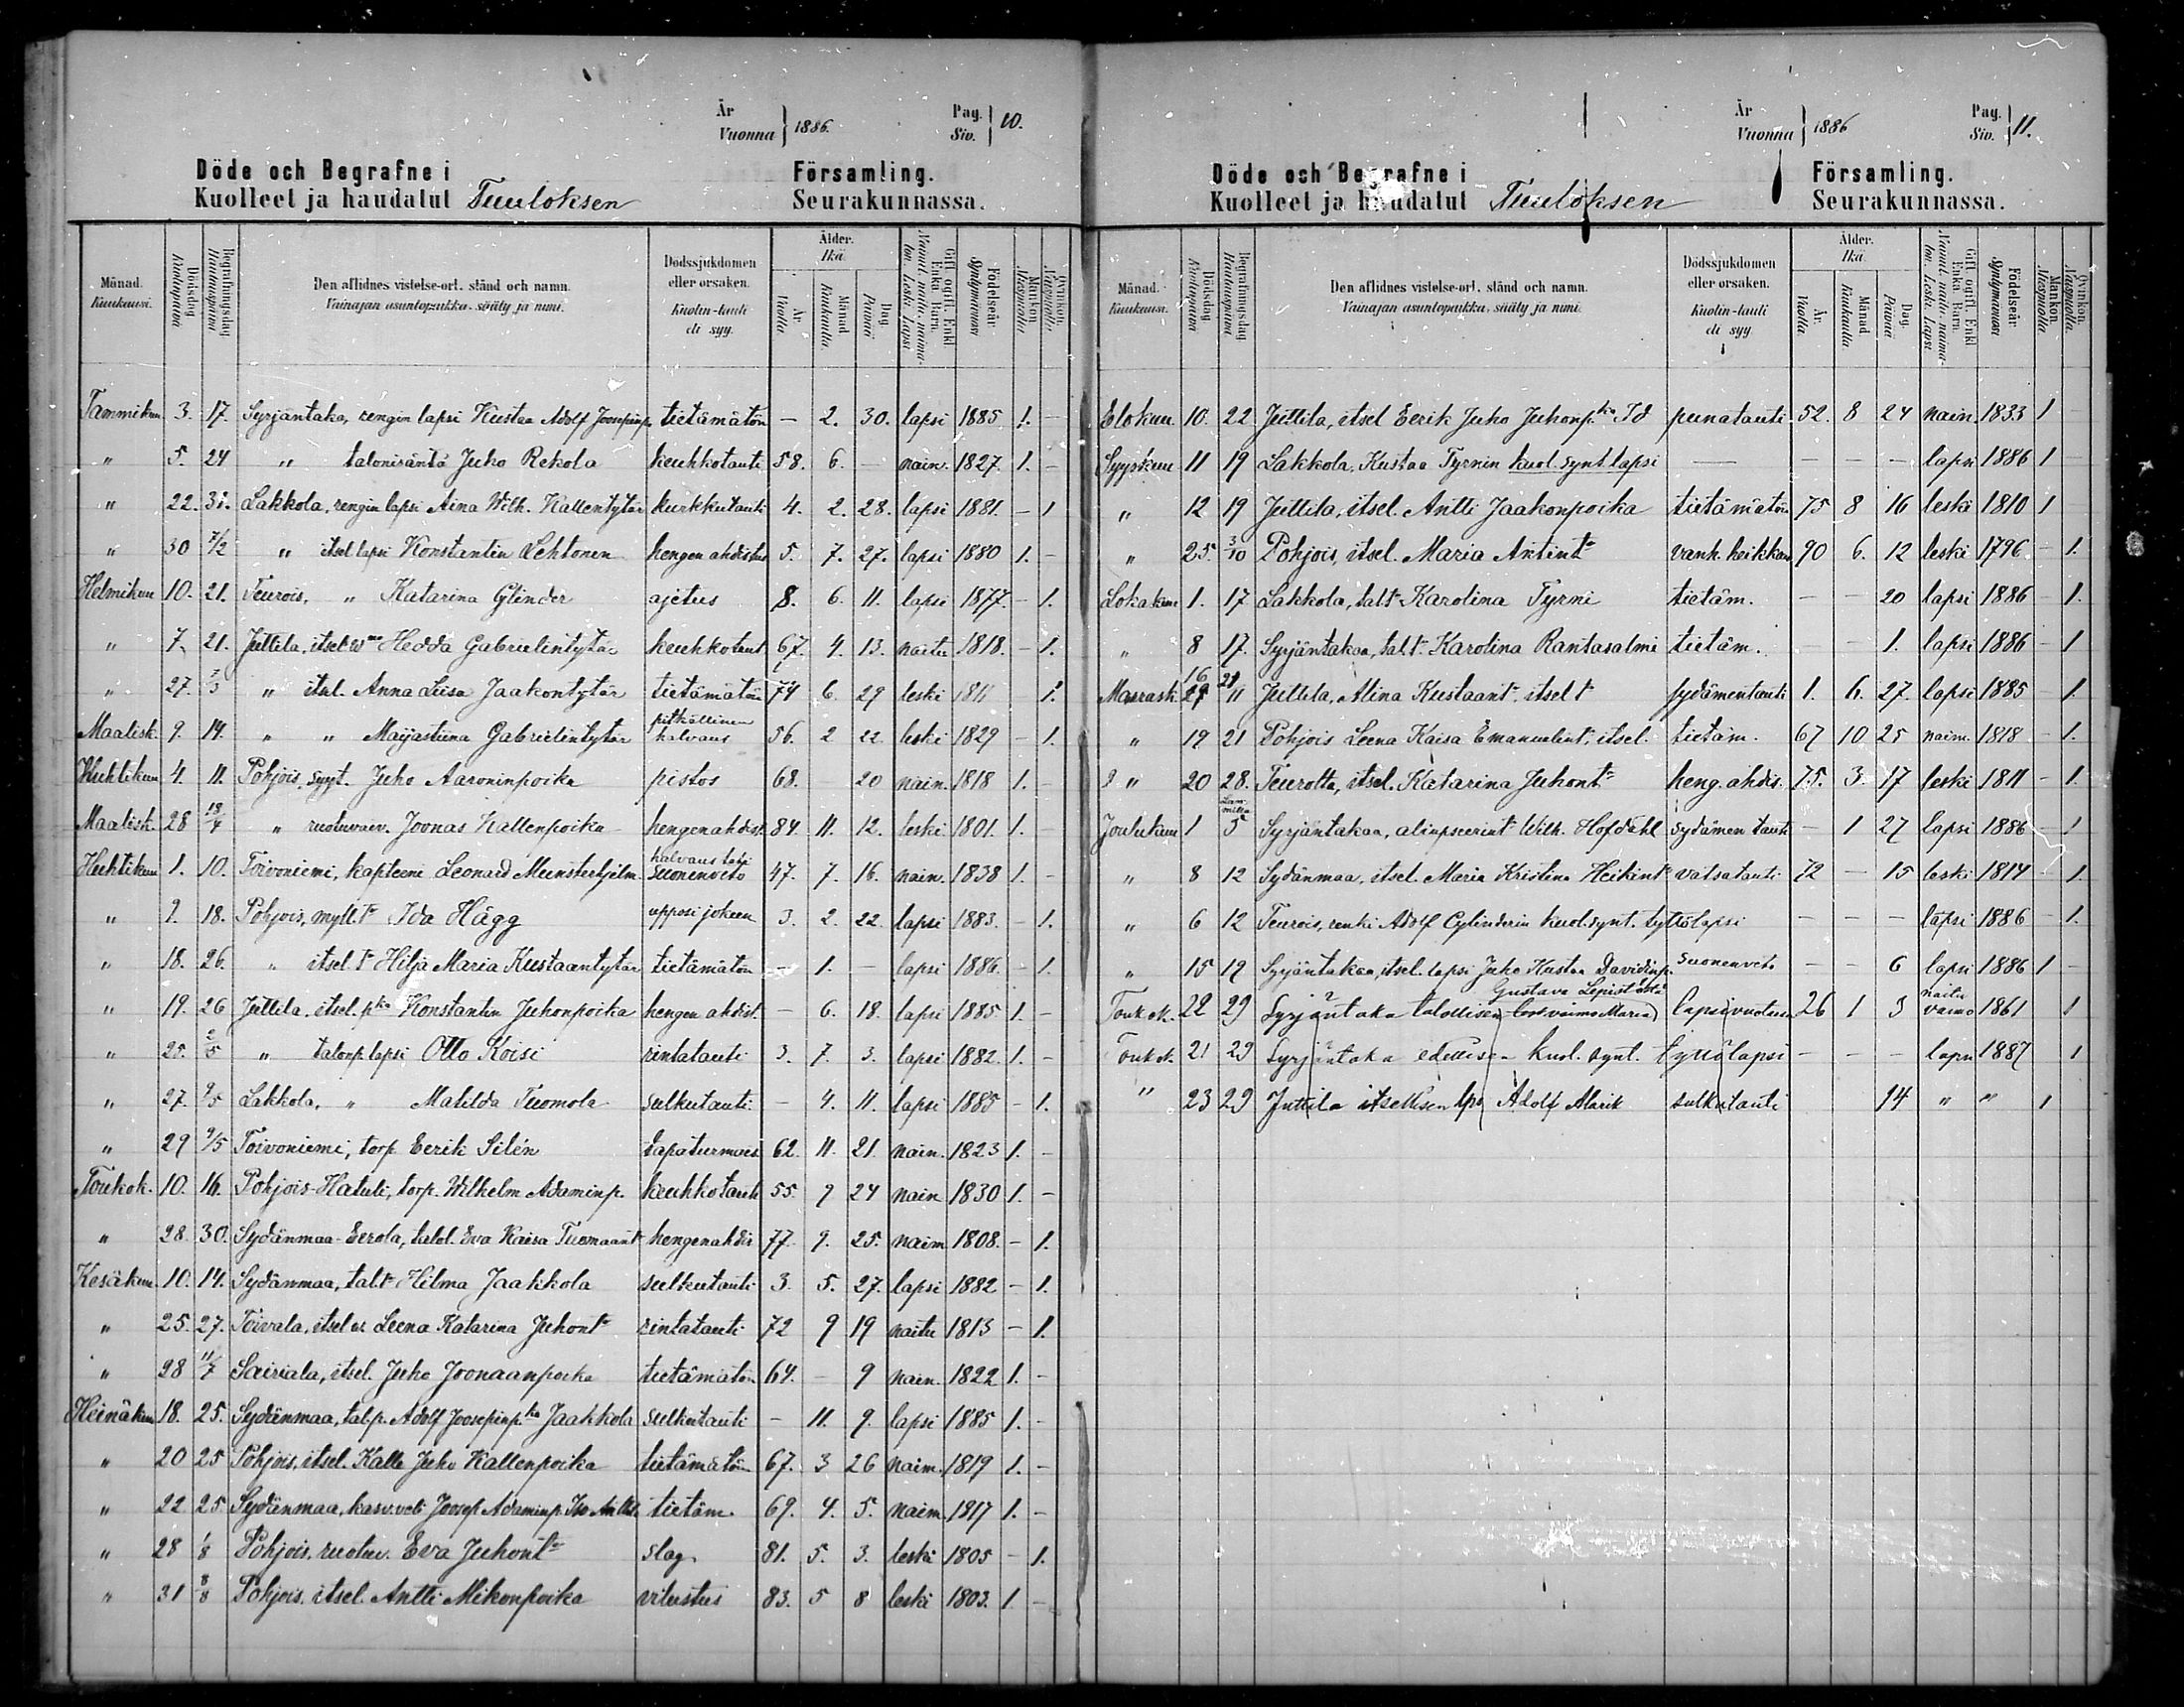 År Vuonna 1886. Pag. Siv. 10.
Döde och Begrafne i Församling.
Kuolleet ja haudatut Tuuloksen Seurakunnassa.
Månad. Kuukausi. Dödsdag Kuolinpäivä Begrafningsdag Hautauspäivä Den aflidnes vistelse-ort, stånd och namn. Vainajan asuntopaikka, sääty ja nimi. Dödssjukdomen eller orsaken. Kuolin-tauti eli syy. Ålder. Ikä. År Vuotta Månad Kuukautta Dag Päivää Gift, ogift, Enkl. Enka, Barn. Födelseår Syntymävuosi Mankön Miespuolia Qvinkön Vaispuolia
Tammikuu 3. 17. Syrjäntaka, rengin lapsi Kustaa Adolf Joosepinp. tietämätön – 2. 30. lapsi 1885 1. –
" 5. 24 " talonisäntä Juho Rekola keuhkotauti 58. 6. – nain. 1827. 1. –
" 22. 31. Lakkola, rengin lapsi Aina Wilh. Kallentytär kurkkutauti 4. 2. 28. lapsi 1881. – 1
" 30 7/2 " itsel. lapsi Konstantin Lehtonen hengenahdistus 5. 7. 27. lapsi 1880 1. –
Helmikuu 10. 21. Teurois, " Katarina Glinder ajetus 8. 6. 11. lapsi 1877. – 1.
" 7. 21. Juttila, itsel. wmo Hedda Gabrielintytär keuhkotaut 67. 4. 13. naitu 1818. – 1.
" 27. 7/3 " itsel. Anna Liisa Jaakontytär tietämätön 74 6. 29 leski 1811 – 1.
Maalisk. 9. 14. " " Maijastiina Gabrielintytär pitkällinen halvaus 56. 2 22 leski 1829 – 1.
Huhtikuu 4. 11. Pohjois, syyt. Juho Aaroninpoika pistos 68. 20 nain. 1818 1. –
Maalisk. 28 18/4 " ruotuvaiv. Joonas Kallenpoika hengenahdist. 84. 11. 12. leski 1801. 1. –
Huhtikuu 1. 10. Toivoniemi, kapteeni Leonard Munsterhjelm halvaus suonenveto 47. 7. 16. nain. 1838 1. –
" 9. 18. Pohjois, myll. tr Ida Hägg upposi jokeen 3. 2. 22. lapsi 1883. – 1.
" 18. 26. " itsel. tr Hilja Maria Kustaantytär tietämätön – 1. – lapsi 1886. – 1.
" 19. 26 Juttila, itsel. pka Konstantin Juhonpoika hengen ahdist. – 6. 18. lapsi 1885 1. –
" 25. 2/5 " talonp. lapsi Otto Koisi rintatauti 3. 7. 3. lapsi 1882. 1. –
" 27. 9/5 Lakkola, " Matilda Tuomola sulkutauti – 4. 11. lapsi 1885 – 1.
" 29 9/5 Toivoniemi, torp. Eerik Silén tapaturmais. 62. 11. 21. nain. 1823 1. –
Toukok. 10. 16. Pohjois-Hatuli, torp. Wilhelm Adaminp. keuhkotauti 55. 9 24 nain 1830 1. –
" 28. 30. Sydänmaa-Eerola, talol. Eva Kaisa Tuomaant. hengenahdis 77. 9. 25. naim 1808. – 1.
Kesäkuu 10. 14. Sydänmaa, tal. tr Hilma Jaakkola sulkutauti 3. 5. 27. lapsi 1882 – 1.
" 25. 27. Toivala, itsel. Leena Katarina Juhontr rintatauti 72 9 19 naitu 1813 – 1.
" 28 11/7 Sairiala, itsel. Juho Joonaanpoika tietämätön 64. – 9 nain. 1822 1. –
Heinäkuu 18. 25. Sydänmaa, tal. p. Adolf Joosepinp. ka Jaakkola sulkutauti – 11. 9. lapsi 1885 1. –
" 20 25 Pohjois, itsel. Kalle Juho Kallenpoika tietämätön 67. 3 26 naim. 1819 1. –
" 22 25. Sydänmaa, kasv. veli Joosef Adaminp. Iso tietäm. 69. 4. 5. naim. 1817 1. –
" 28 1/8 Pohjois, ruotuv. Eva Juhontr slag. 81. 5. 3. leski 1805 – 1.
" 31 8/8 Pohjois, itsel. Antti Mikonpoika vilustus 83. 5 8 leski 1803. 1 –
År Vuonna 1886 Pag. Siv. 11.
Döde och Begrafne i Församling.
Kuolleet ja haudatut Tuuloksen Seurakunnassa.
Månad. Kuukausi. Dödsdag Kuolinpäivä Begrafningsdag Hautauspäivä Den aflidnes vistelse-ort, stånd och namn. Vainajan asuntopaikka, sääty ja nimi. Dödssjukdomen eller orsaken. Kuolin-tauti eli syy. Ålder. Ikä. År. Vuotta Månad Kuukautta Dag. Päivää Gift, ogift, Enkl. Enka, Barn. Födelseår Syntymävuosi Mankön. Miespuolia Qvinkön. Vaispuolia
Elokuu 10. 22 Juttila, itsel Eerik Juho Juhonp. ka Id punatauti 52. 8 24 nain. 1833 1 –
Syyskuu 11 19 Lakkola, Kustaa Tyrnin kuol. synt. lapsi – – – – lapsi 1886 1 –
" 12 19 Juttila, itsel. Antti Jaakonpoika tietämätön 75 8 16 leski 1810 1
" 25. 3/10 Pohjois, itsel. Maria Antintr vanh. heikkous 90 6. 12 leski 1796 – 1.
Lokakuu 1. 17 Lakkola, tal. tr Karolina Tyrni tietäm. – – 20 lapsi 1886 – 1.
" 8 17. Syrjäntakaa, tal. tr Karolina Rantasalmi tietäm. – 1. lapsi 1886 – 1
16 21
Marrask. 11 Juttila, Alina Kustaantr itsel. t sydämentauti 1. 6. 27. lapsi 1885 – 1.
" 19 21 Pohjois Leena Kaisa Emanuelint. itsel. tietäm. 67 10 25 naim. 1818 – 1.
" 20 28. Teurolta, itsel. Katarina Juhontr heng. ahdis. 75. 3. 17 leski 1811 – 1.
Joulukuu 1 5 Syrjäntakaa, aliupseerint Wilh. Hofdahl sydämen tauti – 1 27 lapsi 1886 – 1
" 8 12 Sydänmaa, itsel. Maria Kristina Heikintr vatsatauti 72 – 15 leski 1814 – 1.
" 6 12 Teurois, renki Adolf Cylinderin kuol. synt. tyttölapsi – – – lapsi 1886 – 1.
" 15 19 Syrjäntakaa, itsel. lapsi Juho Kustaa Davidinp. suonenveto – – 6 lapsi 1886 1 –
Gustava Lepistältä
Toukok. 22 29 Syrjäntaka talollisen vaimo Maria lapsivuoteesen 26 1 3 naitu vaimo 1861 1
Toukok. 21 29 Syrjäntaka edellisen kuol. synt. tyttölapsi – – – lapsi 1887 1
" 23 29 Juttila itsellisen lps Adolf Alarik sulkutauti 14 " " 1